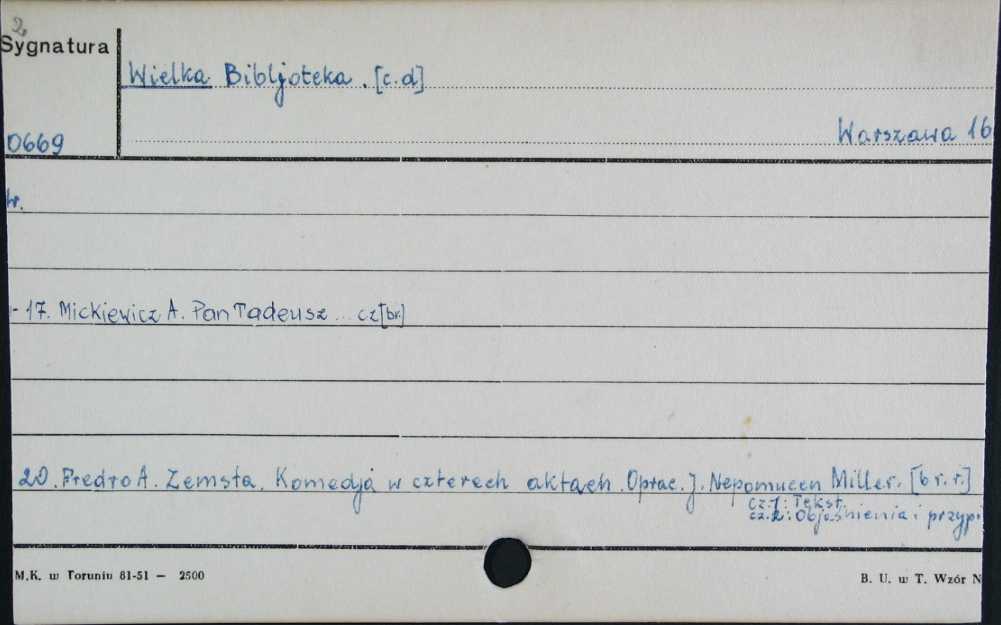 2
Sygnatura
Wielka Bibljoteka. [c.d]
0669
Warszawa 16
br.
- 17. Mickiewicz A. Pan Tadeusz... cz[br.]
20. Fredro A. Zemsta. Komedja w czterech aktach. Oprac. J. Nepomucen Miller. [b r. r.]
cz.1: Tekst.
cz.2: Objaśnienia i przypi
M.K. w Toruniu 81-51 — 2500
B. U. w T. Wzór N